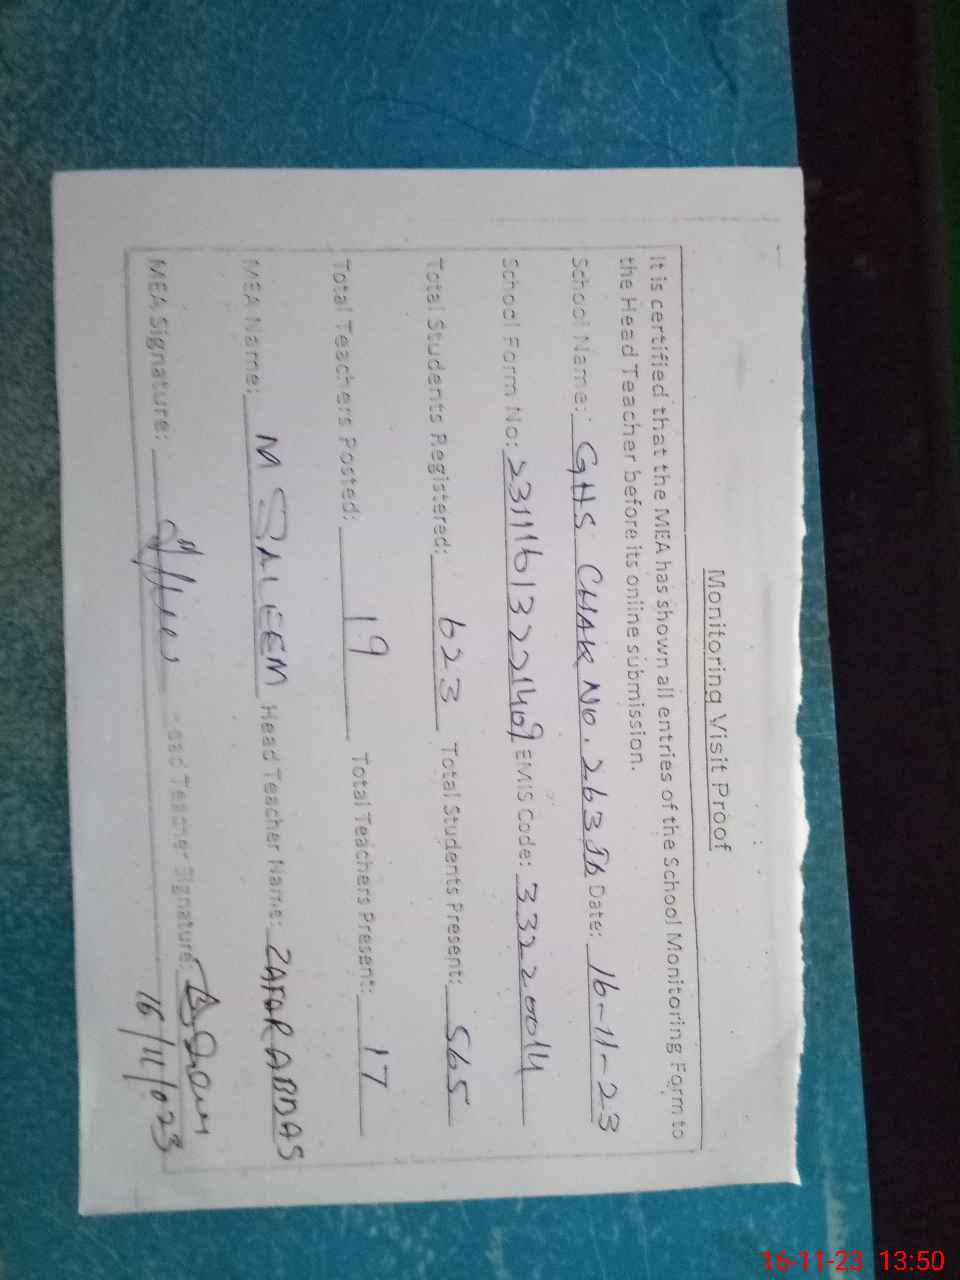 Monitoring Visit Proof
It is certified that the MEA has shown all entries of the School Monitoring Form to
the Head Teacher before its online submission.
School Name: GHS CHAK No. 263 Jb Date: 16-11-23
School Form No: 231116132221409 EMIS Code: 33220014
Total Students Registered: 623 Total Students Present: 565
Total Teachers Posted: 19 Total Teachers Present: 17
MEA Name: M SALEEM Head Teacher Name: ZAFAR ABBAS
MEA Signature: Head Teacher Signature:
16/11/023
16-11-23 13:50